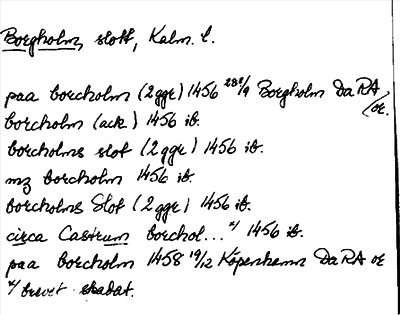 Borgholm, slott, Kalm. l.
paa borcholm (2 ggr) 1456 28/9 Borgholm DaRA or.
borcholm (ack) 1456 ib.
borcholms slot (2 ggr) 1456 ib.
mz borcholm 1456 ib.
borcholms Slot (2 ggr) 1456 ib.
circa Castrum borchol...x/ 1456 ib.
paa borcholm 1458 19/12 Köpenhamn DaRA or
x/ brevet skadat.